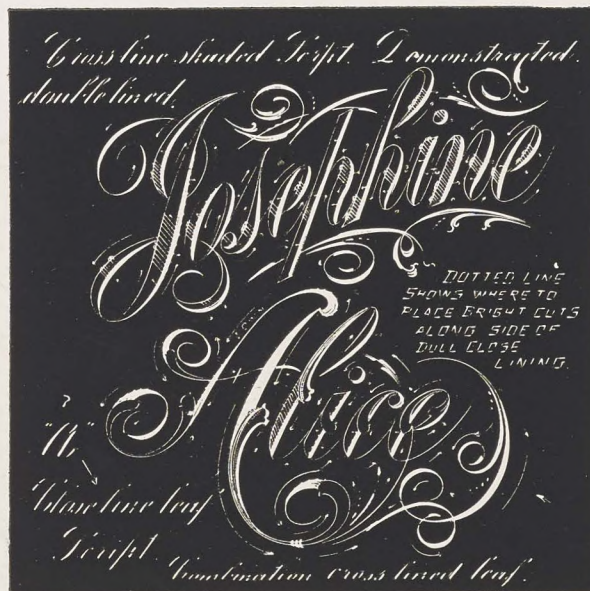 Cross line shaded Script. Demonstrated.
double lined.
Josephine
DOTTED LINE
SHOWS WHERE TO
PLACE BRIGHT CUTS
ALONG SIDE OF
DULL CLOSE
LINING.
Alice
?
"A"
Close line leaf
Script.
Combination cross lined leaf.